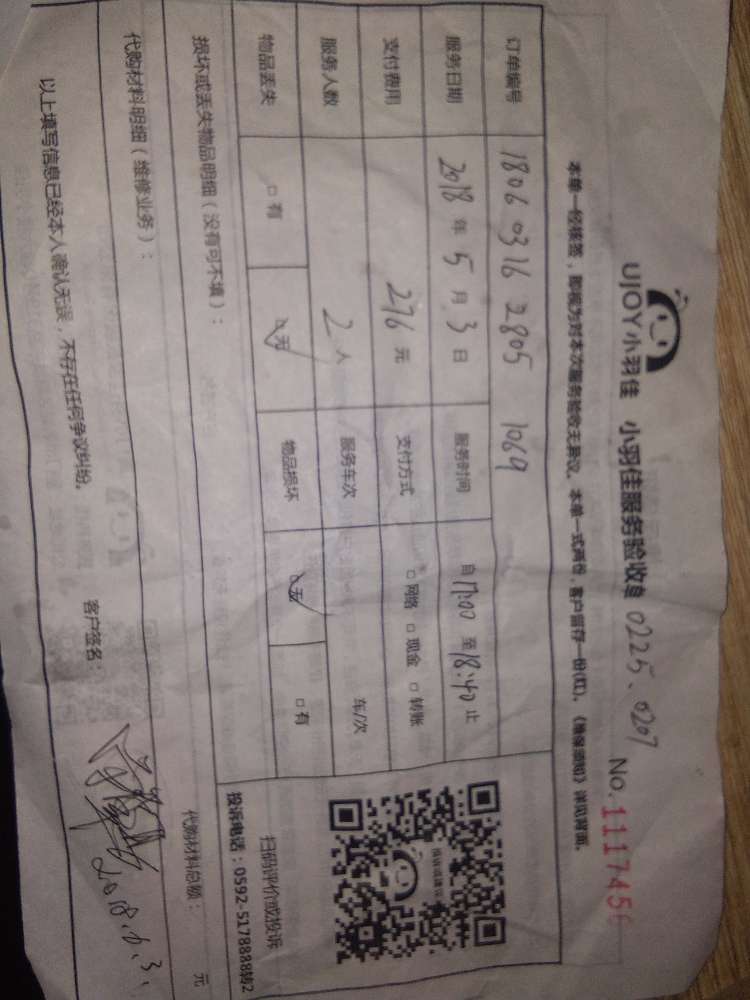 UJOY小羽佳 小羽佳服务验收单 0225、0207
No. 1117456
本单一经核签，即视为对本次服务验收无异议。本单一式两份，客户留存一份(红)。《维保须知》详见背面。
订单编号 1806 0316 2805 1069
服务日期 2018 年 5 月 3 日 服务时间 自 17:00 至 18:40 止
支付费用 276 元 支付方式 □网络 □现金 □转账
服务人数 2 人 服务车次 车/次
物品丢失 □有 ☑无 物品损坏 ☑无 □有
投诉或建议
扫码评价或投诉
投诉电话：0592-5178888转2
损坏或丢失物品明细（没有可不填）：
代购材料明细（维修业务）：
代购材料总额： 元
以上填写信息已经本人确认无误，不存在任何争议纠纷。
客户签名：
2018.6.3.